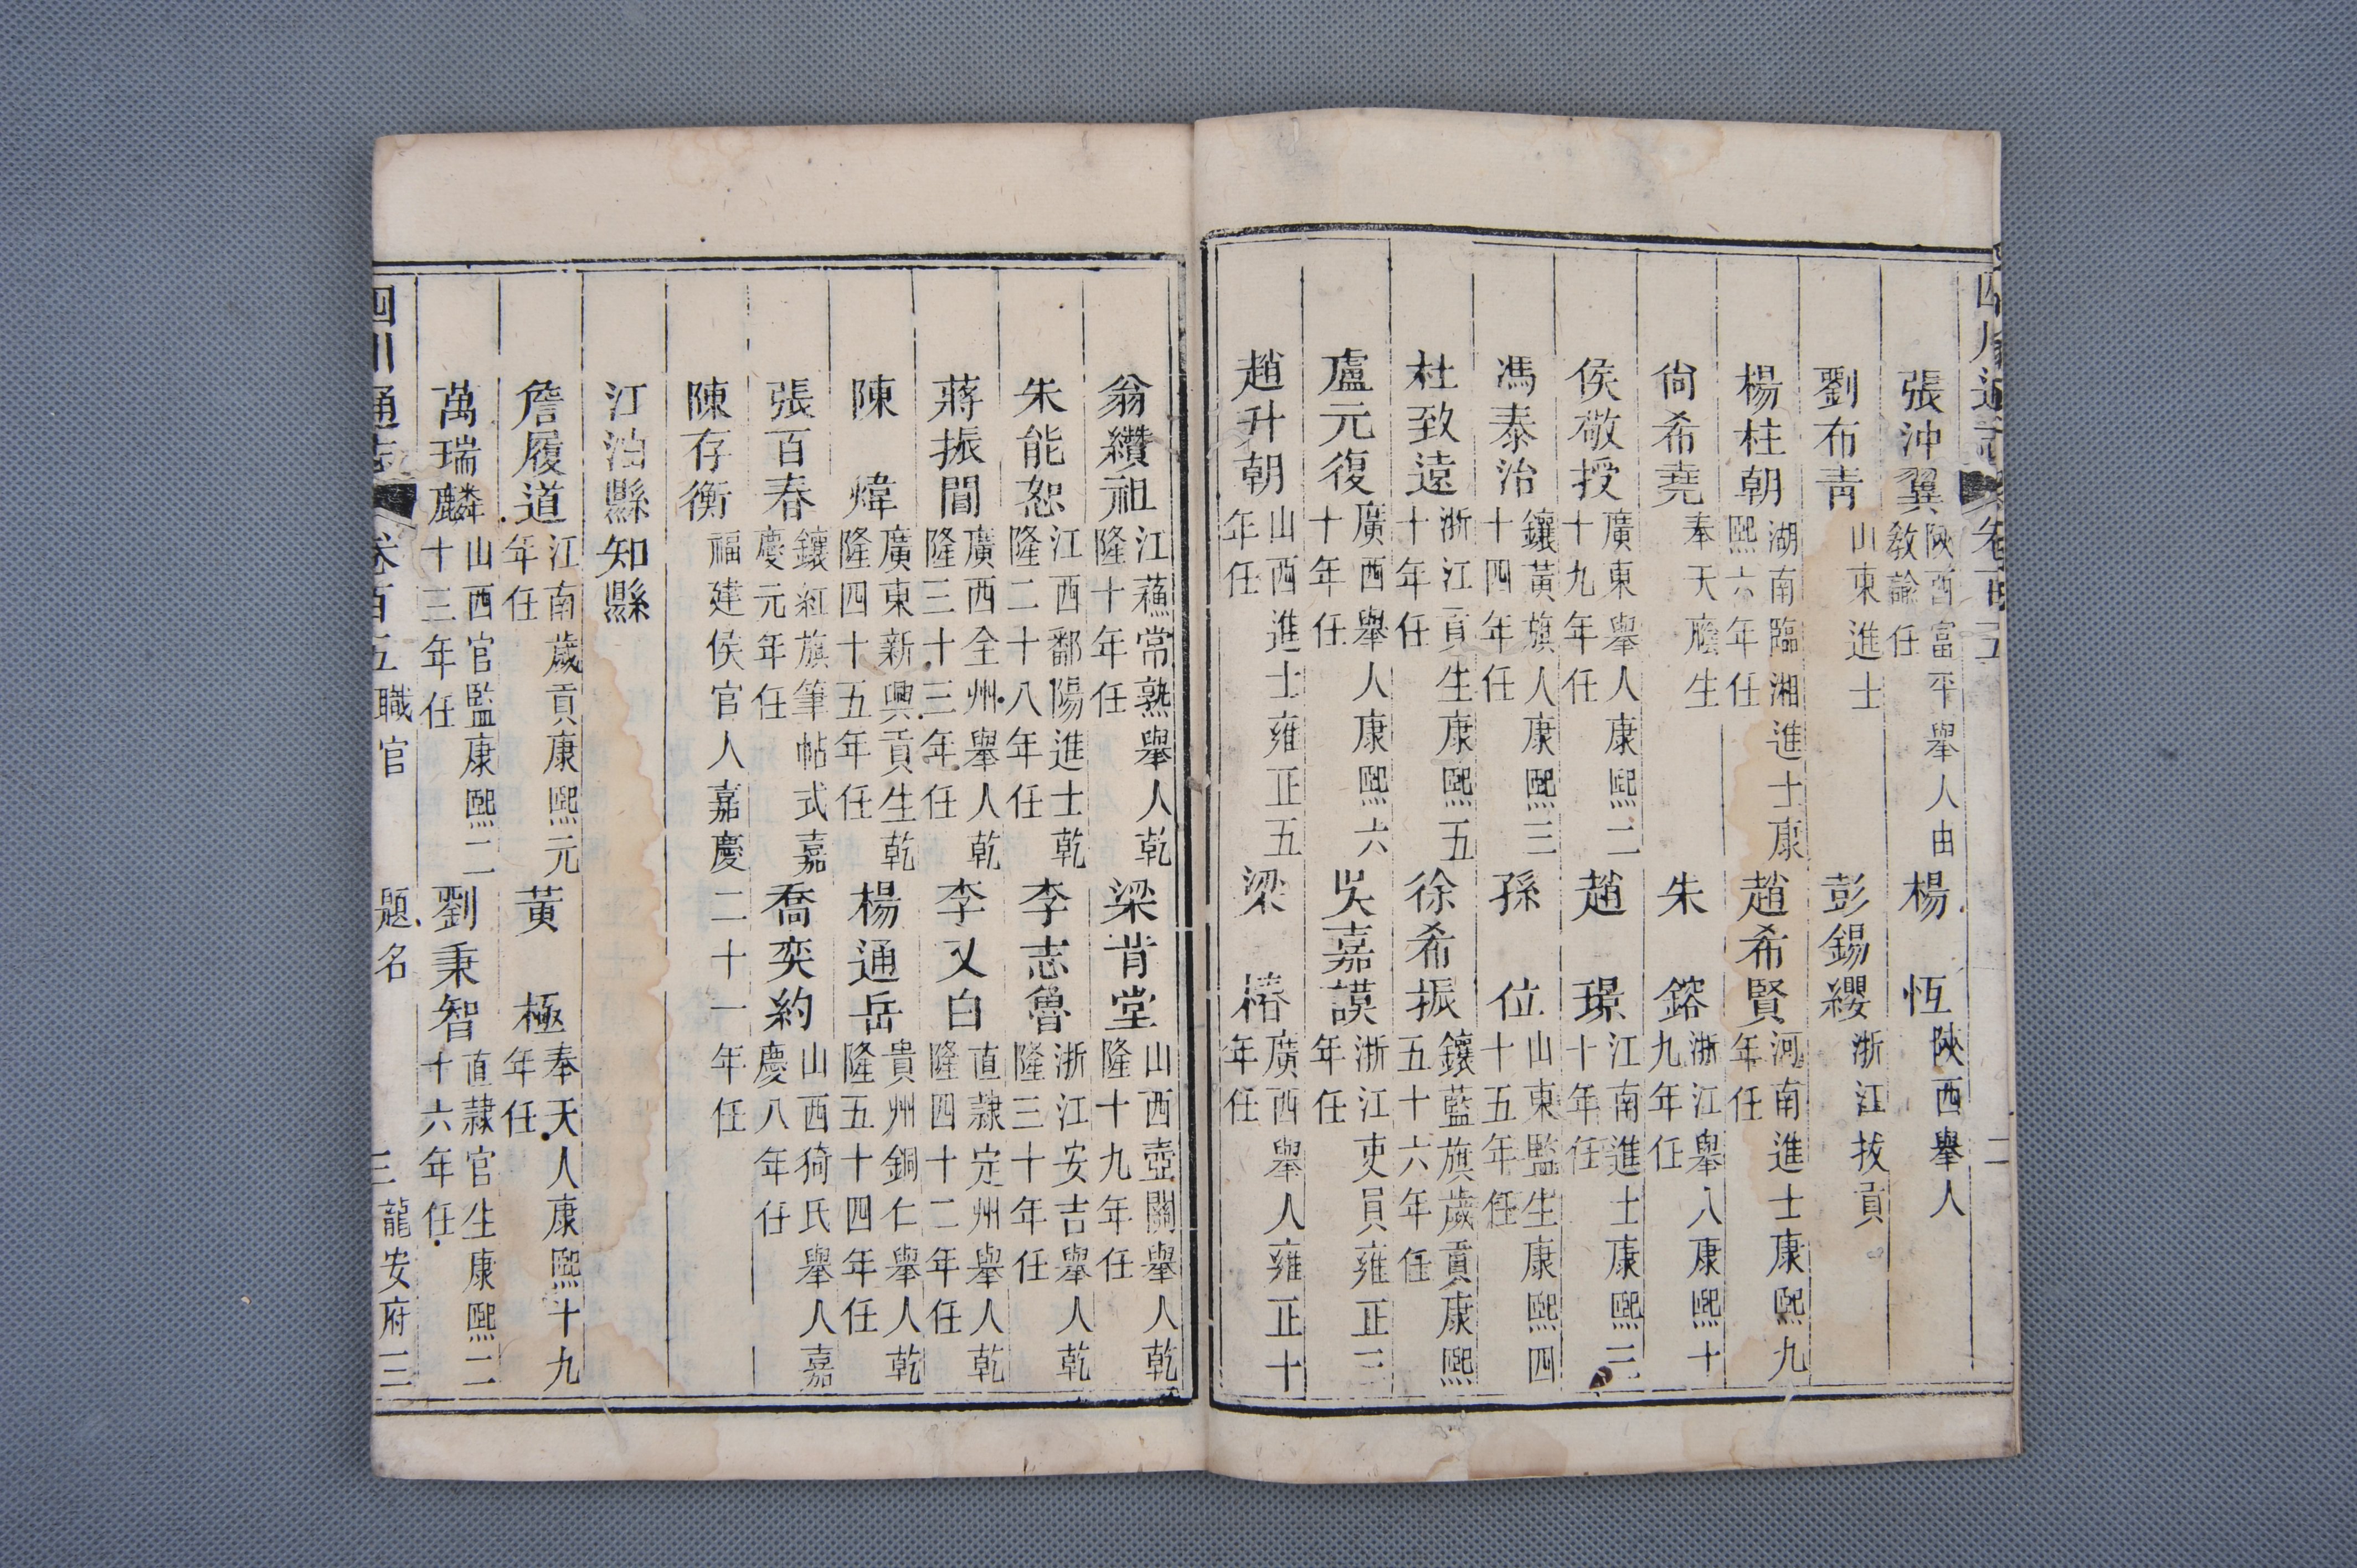 四川通志 卷百五 二
張沖翼 陝西富平舉人由教諭任 楊恆 陝西舉人
劉布青 山東進士 彭錫纓 浙江拔貢
楊柱朝 湖南臨湘進士康熙六年任 趙希賢 河南進士康熙九年任
尙希堯 奉天廕生 朱鎔 浙江舉人康熙十九年任
侯敬授 廣東舉人康熙二十九年任 趙璟 江南進士康熙三十年任
馮泰治 鑲黃旗人康熙三十四年任 孫位 山東監生康熙四十五年任
杜致遠 浙江貢生康熙五十年任 徐希振 鑲藍旗歲貢康熙五十六年任
盧元復 廣西舉人康熙六十年任 吳嘉謨 浙江吏員雍正三年任
趙升朝 山西進士雍正五年任 梁椿 廣西舉人雍正十年任
翁纘祖 江蘇常熟舉人乾隆十年任 梁肯堂 山西壺關舉人乾隆十九年任
朱能恕 江西鄱陽進士乾隆二十八年任 李志魯 浙江安吉舉人乾隆三十年任
蔣振閶 廣西全州舉人乾隆三十三年任 李又白 直隷定州舉人乾隆四十二年任
陳煒 廣東新興貢生乾隆四十五年任 楊通岳 貴州銅仁舉人乾隆五十四年任
張百春 鑲紅旗筆帖式嘉慶元年任 喬奕約 山西猗氏舉人嘉慶八年任
陳存衡 福建侯官人嘉慶二十一年任
江油縣知縣
詹履道 江南歲貢康熙元年任 黃極 奉天人康熙十九年任
萬瑞麟 山西官監康熙二十三年任 劉秉智 直隷官生康熙二十六年任
四川通志 卷百五 職官 題名 三 龍安府三